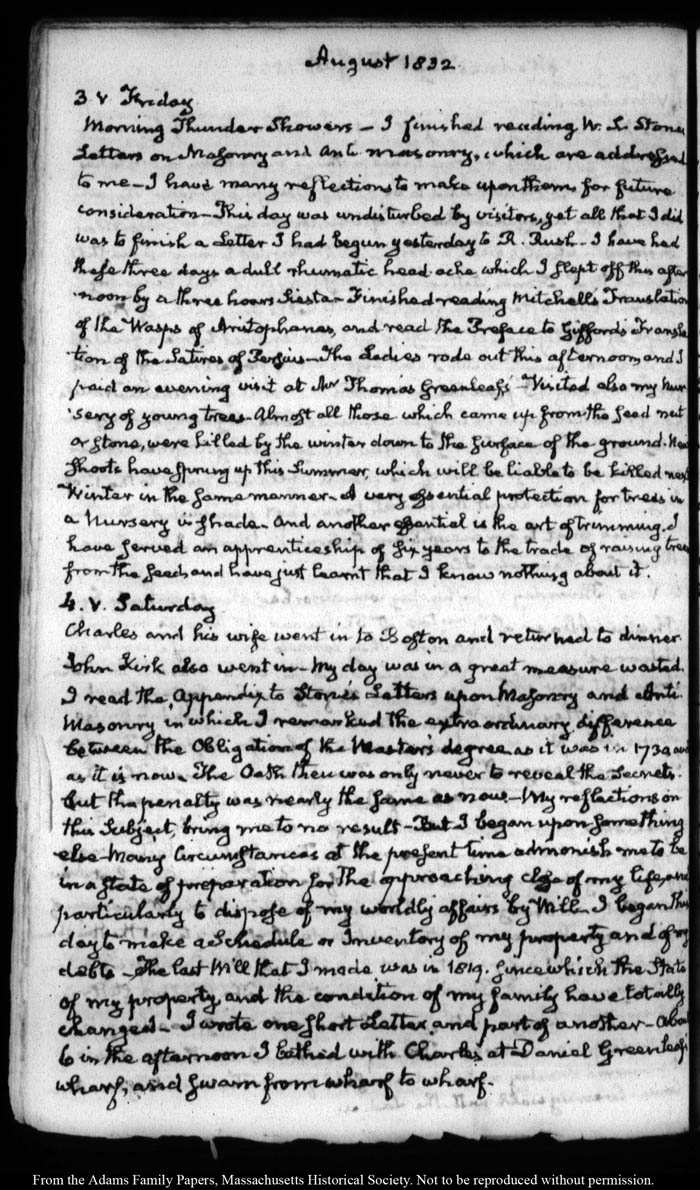 August 1832.
3 V Friday
Morning Thunder Showers — I finished reading W. L. Stone
Letters on Masonry and Anti masonry, which are addressed
to me — I have many reflections to make upon them for future
consideration — This day was undisturbed by visitors, yet all that I did
was to finish a Letter I had begun yesterday to R. Rush — I have had
these three days a dull rhumatic head-ache which I slept off this after
noon by a three hours Siesta — Finished reading Mitchell's Translation
of the Wasps of Aristophanes, and read the Preface to Gifford's Transla
tion of the Satires of Persius — The Ladies rode out this afternoon, and I
paid an evening visit at Mr Thomas Greenleaf's — Visited also my Nur
sery of young trees — Almost all those which came up from the seed nut
or stone, were killed by the winter down to the surface of the ground. New
shoots have sprung up this Summer, which will be liable to be killed next
Winter in the same manner — A very essential protection for trees in
a Nursery is shade — And another essential is the art of trimming. I
have served an apprenticeship of six years to the trade of raising trees
from the seed and have just learnt that I know nothing about it.
4. V. Saturday
Charles and his wife went in to Boston and returned to dinner
John Kirk also went in — My day was in a great measure wasted.
I read the Appendix to Stone's Letters upon Masonry and Anti
Masonry in which I remarked the extraordinary difference
between the Obligation of the Master's degree as it was in 1730 and
as it is now. The Oath then was only never to reveal the secrets.
but the penalty was nearly the same as now — My reflections on
this Subject, bring me to no result — But I began upon something
else — Many Circumstances at the present time admonish me to be
in a state of preparation for the approaching close of my life, and
particularly to dispose of my worldly affairs by Will. I began this
day to make a Schedule or Inventory of my property and of my
debts — The last Will that I made was in 1819. since which the State
of my property, and the condition of my family have totally
changed — I wrote one short Letter, and part of another — About
6 in the afternoon I bathed with Charles at Daniel Greenleaf's
wharf, and swam from wharf to wharf.
From the Adams Family Papers, Massachusetts Historical Society. Not to be reproduced without permission.